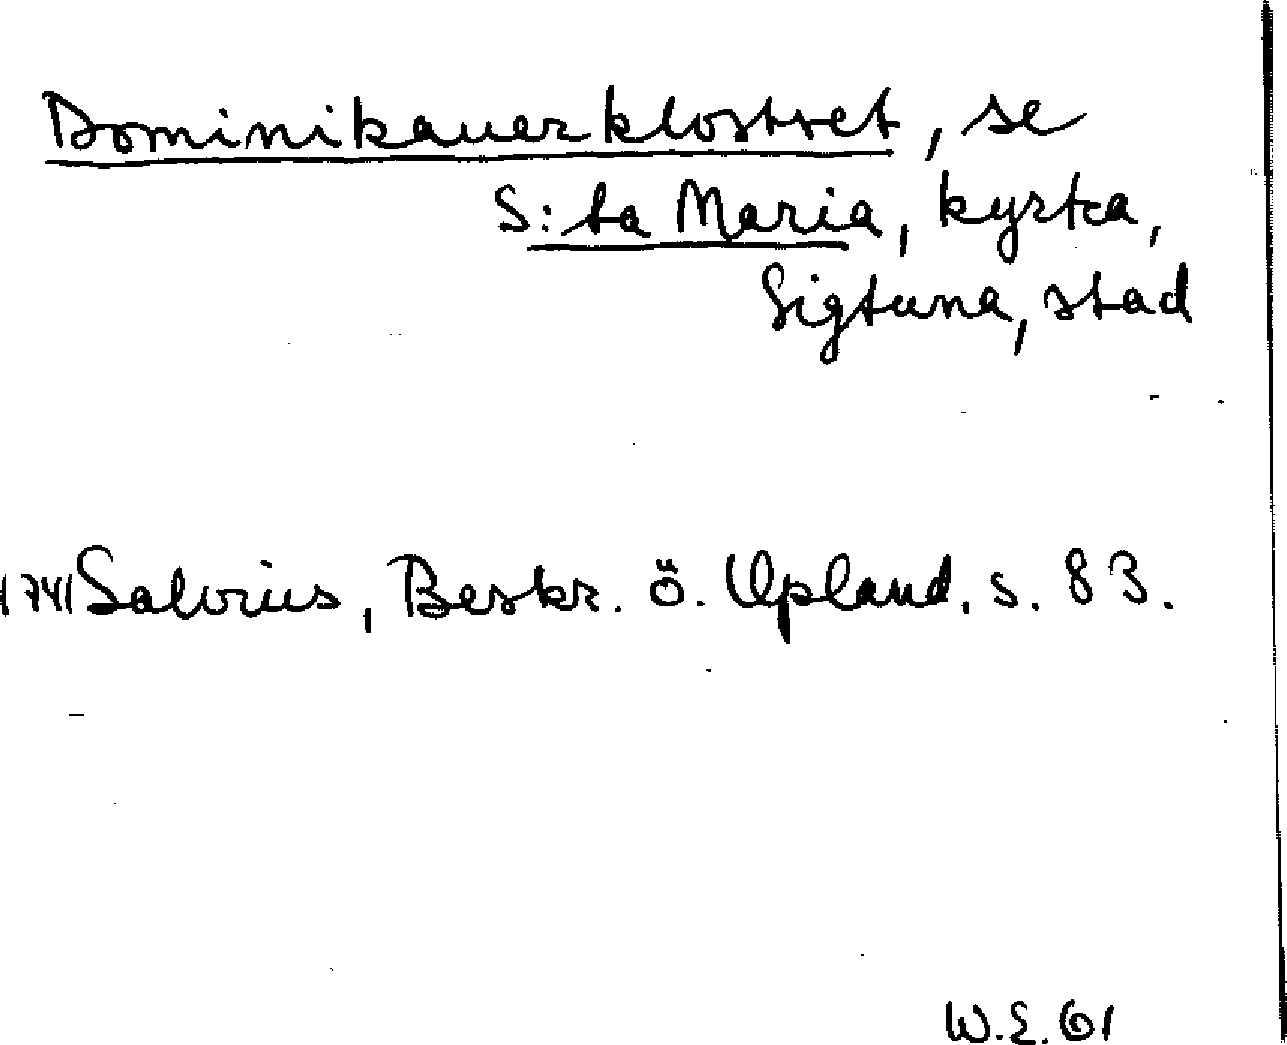 Dominikanerklostret, se
S:ta Maria, kyrka,
Sigtuna, stad
1741 Salvius, Beskr. ö. Upland. s. 83.
W.E. 61